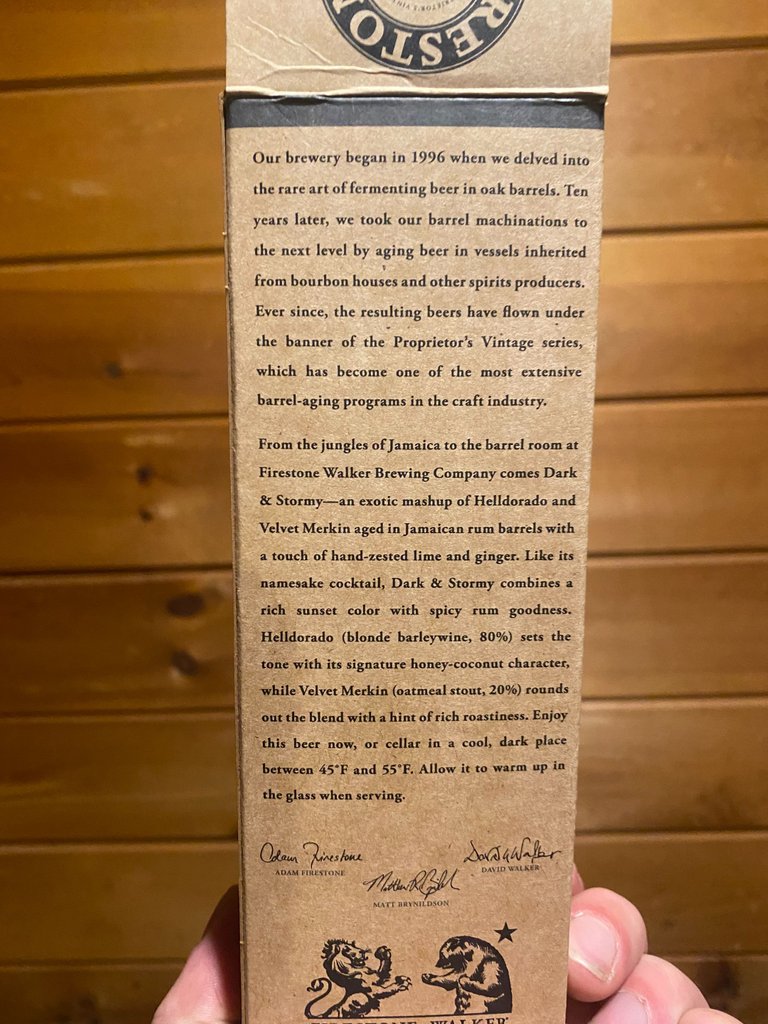 FIRESTON
PRIETOR'S VINT
Our brewery began in 1996 when we delved into
the rare art of fermenting beer in oak barrels. Ten
years later, we took our barrel machinations to
the next level by aging beer in vessels inherited
from bourbon houses and other spirits producers.
Ever since, the resulting beers have flown under
the banner of the Proprietor's Vintage series,
which has become one of the most extensive
barrel-aging programs in the craft industry.
From the jungles of Jamaica to the barrel room at
Firestone Walker Brewing Company comes Dark
& Stormy—an exotic mashup of Helldorado and
Velvet Merkin aged in Jamaican rum barrels with
a touch of hand-zested lime and ginger. Like its
namesake cocktail, Dark & Stormy combines a
rich sunset color with spicy rum goodness.
Helldorado (blonde barleywine, 80%) sets the
tone with its signature honey-coconut character,
while Velvet Merkin (oatmeal stout, 20%) rounds
out the blend with a hint of rich roastiness. Enjoy
this beer now, or cellar in a cool, dark place
between 45°F and 55°F. Allow it to warm up in
the glass when serving.
Adam Firestone
David Walker
ADAM FIRESTONE
DAVID WALKER
MATT BRYNILDSON
FIRESTONE WALKER